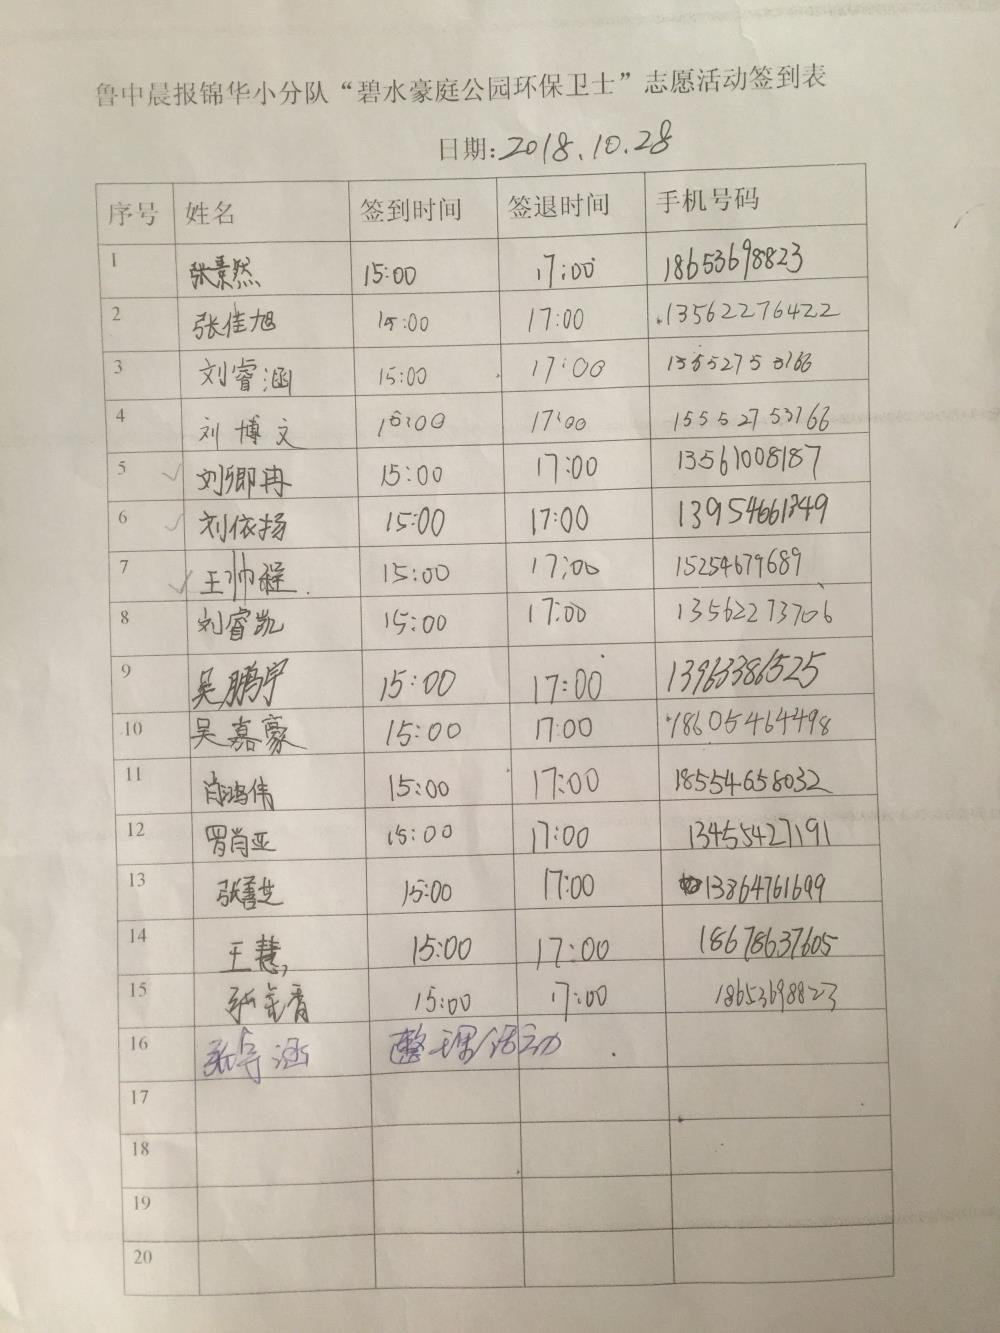 鲁中晨报锦华小分队“碧水豪庭公园环保卫士”志愿活动签到表
日期:2018.10.28
序号 姓名 签到时间 签退时间 手机号码
1 张景然 15:00 17:00 18653698823
2 张佳旭 15:00 17:00 13562276422
3 刘睿涵 15:00 17:00 15552753766
4 刘博文 16:00 17:00 15552753766
5 刘卿冉 15:00 17:00 13561008187
6 刘依扬 15:00 17:00 13954661349
7 王帅程 15:00 17:00 15254679689
8 刘睿凯 15:00 17:00 13562273706
9 吴鹏宇 15:00 17:00 13963386525
10 吴嘉豪 15:00 17:00 18605464498
11 肖鸿伟 15:00 17:00 18554658032
12 罗肖亚 15:00 17:00 13455427191
13 张善芝 15:00 17:00 13864761699
14 王慧 15:00 17:00 18678637605
15 15:00 17:00 18653698823
16 整理活动
17
18
19
20